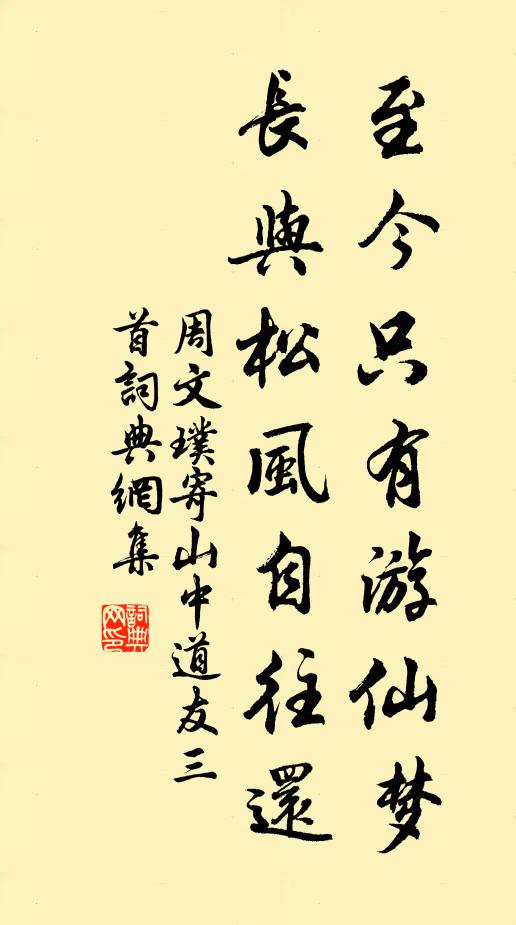 至今只有游仙梦
長與松風自往還
周文璞寄山中道友三
首詞典網集
詞典
网印